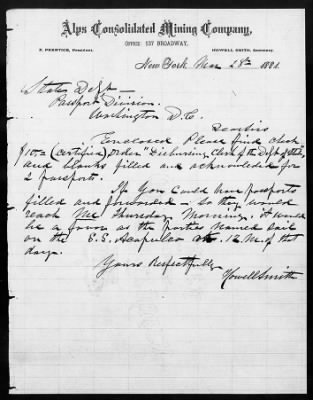 Alps Consolidated Mining Company,
OFFICE 137 BROADWAY.
F. PRENTICE, President.
HOWELL SMITH, Secretary.
New York Mar 28th 1881
State Dept —
Passport Division.
Washington D.C.
Dear Sirs
Enclosed Please find check
(certified) order "Disbursing Clerk of the Dept of State"
and blanks filled and acknowledged for
2 passports.
If you could have passports
filled and forwarded — so they would
reach Me Thursday Morning, it would
be a favor as the parties named sail
on the S.S. Acapulco at 12 M. of that
day.
Yours Respectfully
Howell Smith